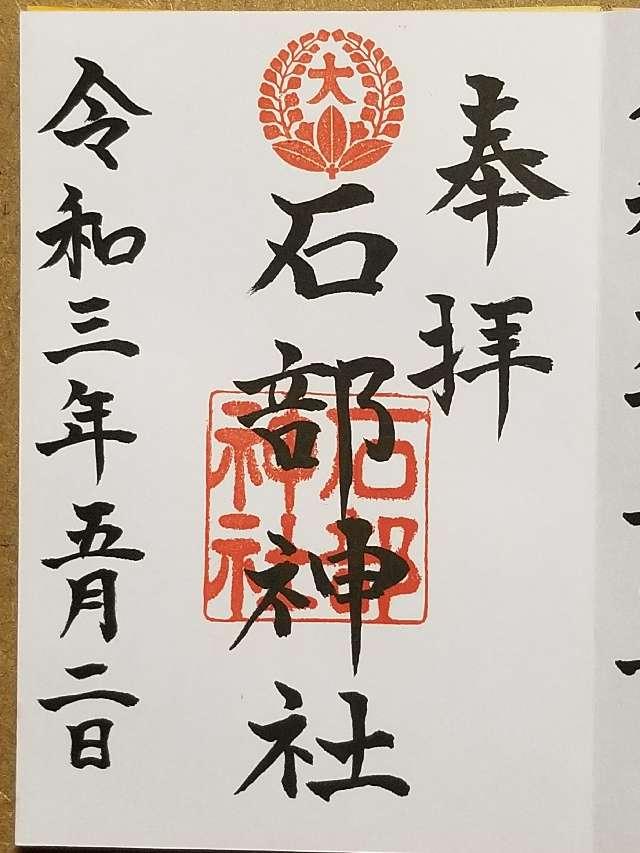 奉拝
大
石部神社
石部
神社
令和三年五月二日